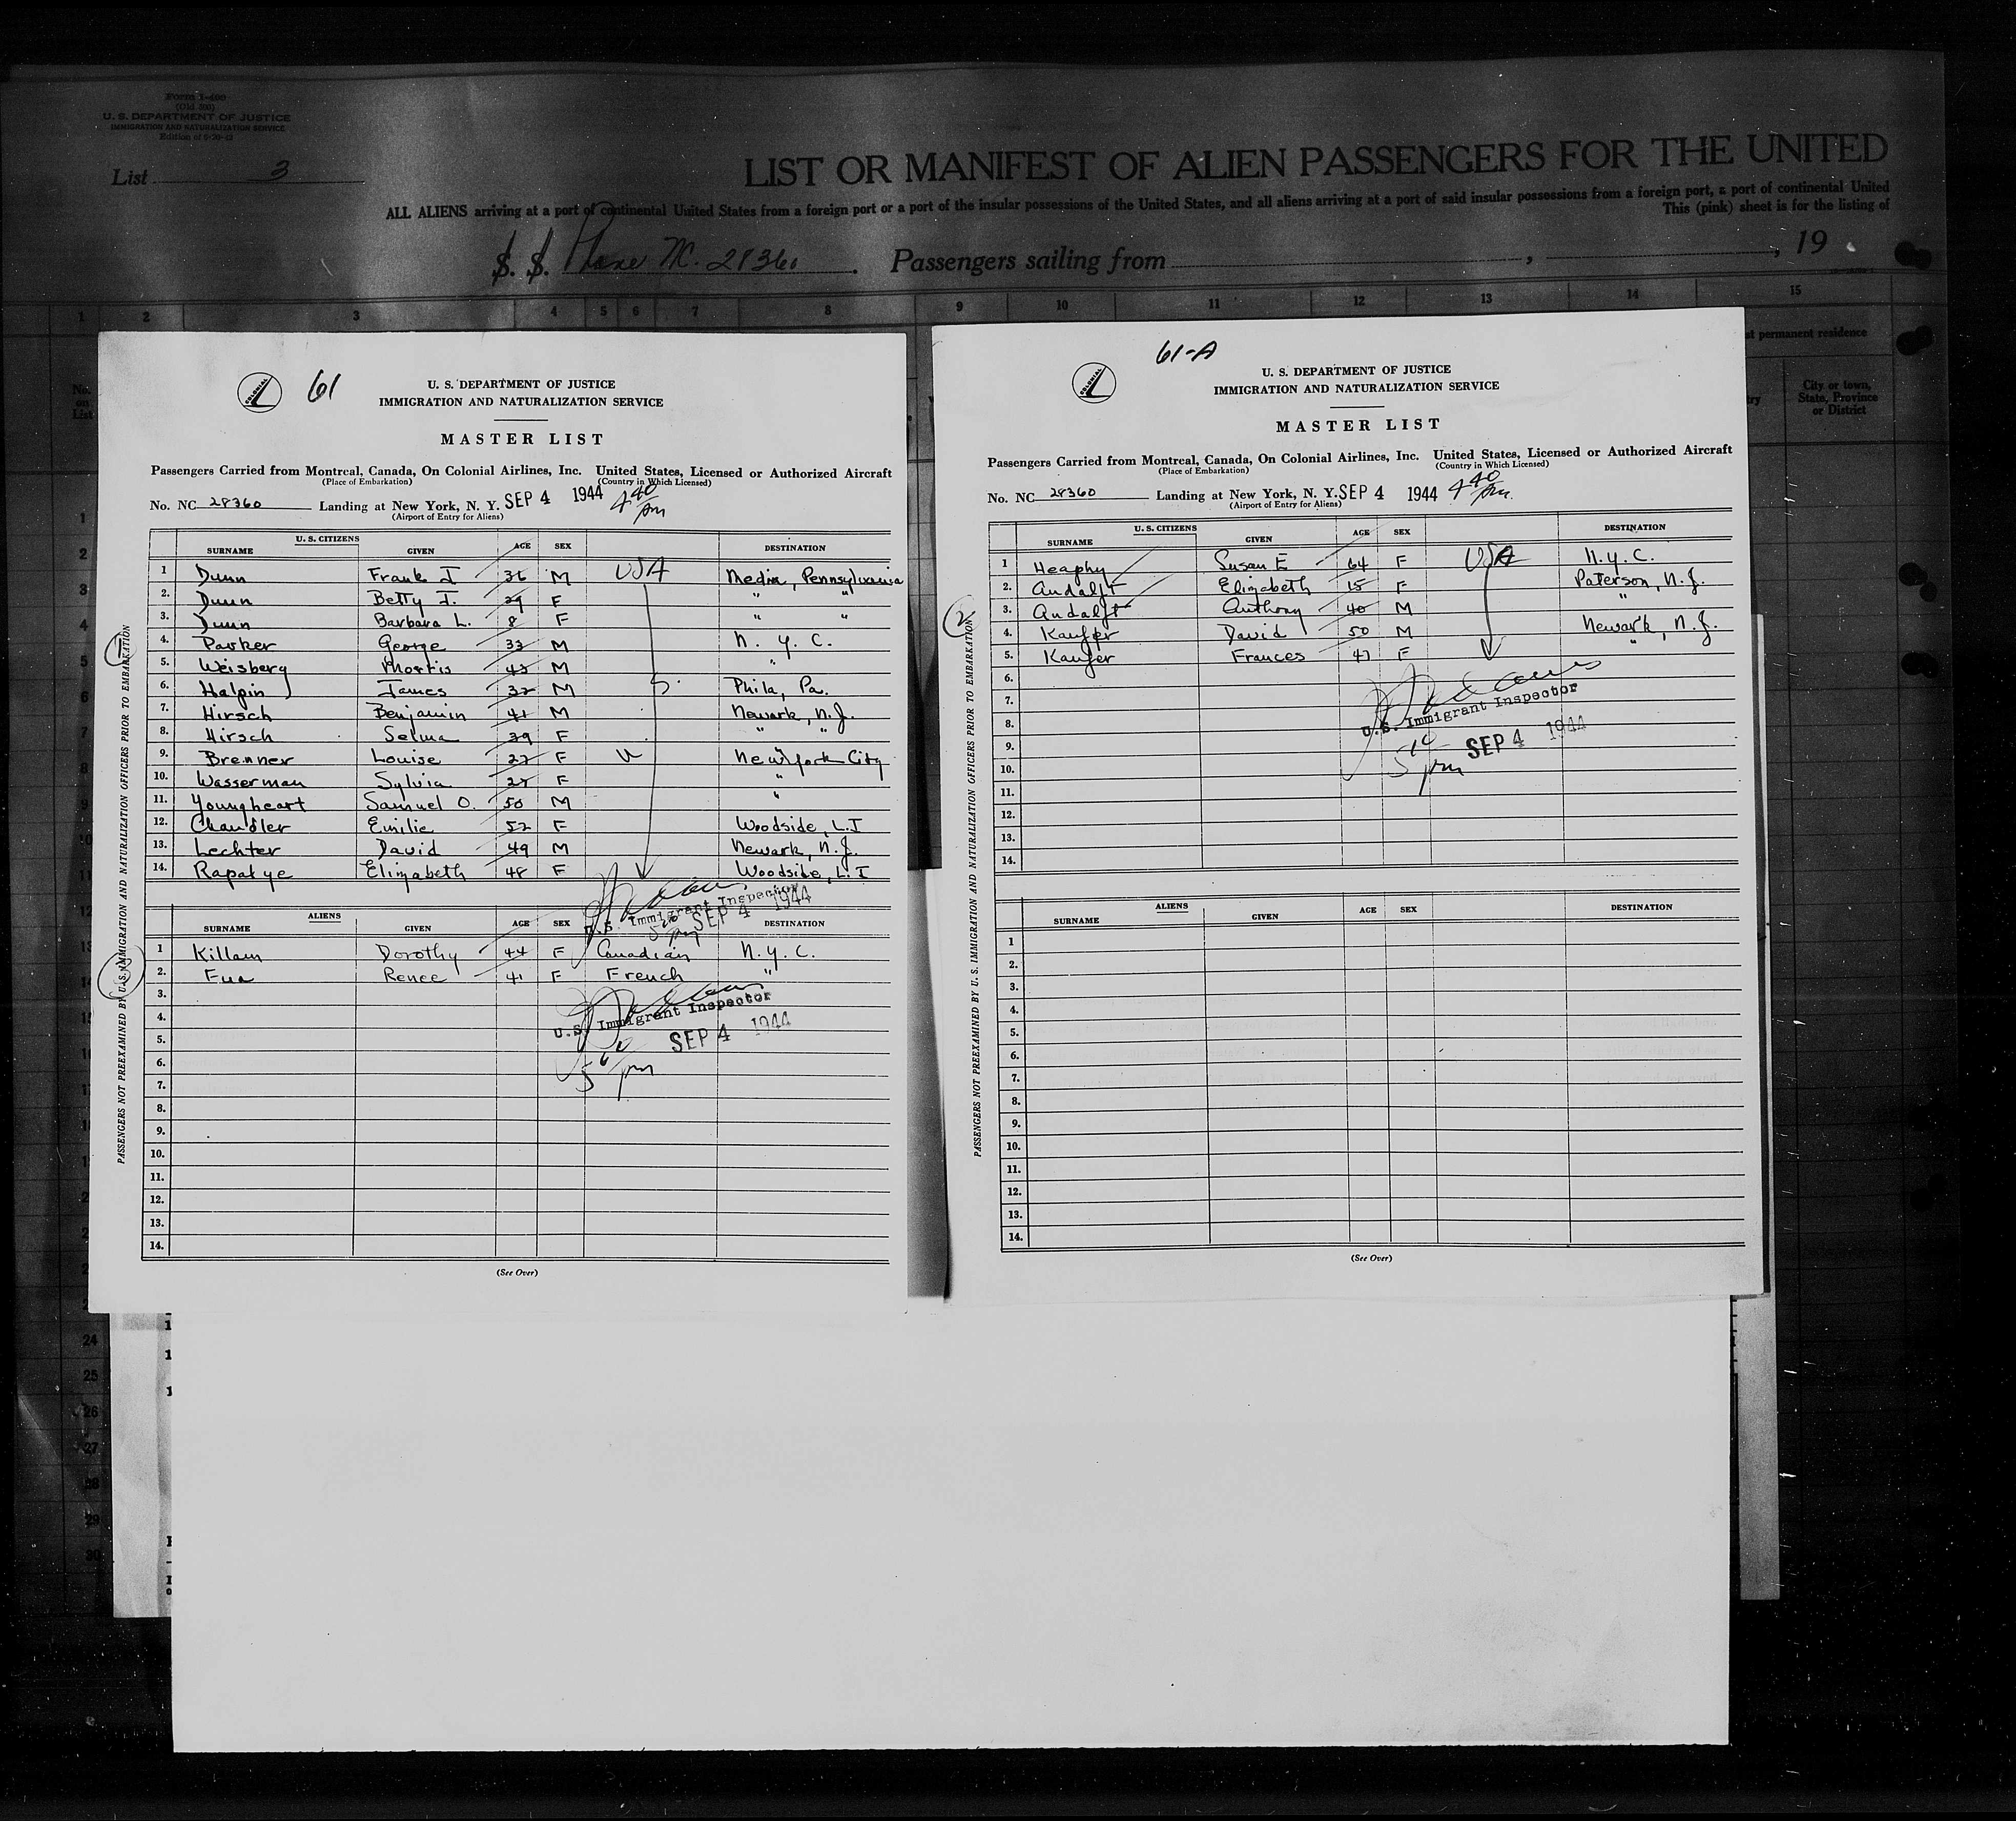 Form I-400
(Old 500)
U. S. DEPARTMENT OF JUSTICE
IMMIGRATION AND NATURALIZATION SERVICE
List 3
LIST OR MANIFEST OF ALIEN PASSENGERS FOR THE UNITED
ALL ALIENS arriving at a port of continental United States from a foreign port or a port of the insular possessions of the United States, and all aliens arriving at a port of said insular possessions from a foreign port, a port of continental United
This (pink) sheet is for the listing of
S. S. Plane NC. 28360 . Passengers sailing from , , 19
1 2 3 4 5 6 7 8 9 10 11 12 13 14 15
No. on List
st permanent residence
City or town, State, Province or District
COLONIAL
61
U. S. DEPARTMENT OF JUSTICE
IMMIGRATION AND NATURALIZATION SERVICE
MASTER LIST
Passengers Carried from Montreal, Canada, On Colonial Airlines, Inc. United States, Licensed or Authorized Aircraft
(Place of Embarkation) (Country in Which Licensed)
No. NC 28360 Landing at New York, N. Y. SEP 4 1944 4 40 pm
(Airport of Entry for Aliens)
U. S. CITIZENS
SURNAME GIVEN AGE SEX DESTINATION
1 Dunn Frank J 36 M USA Media, Pennsylvania
2. Dunn Betty J. 29 F " "
3. Dunn Barbara L. 8 F " "
4. Parker George 33 M N. Y. C.
5. Weisberg Morris 43 M "
6. Halpin James 32 M Phila, Pa.
7. Hirsch Benjamin 41 M Newark, N.J.
8. Hirsch Selma 39 F " "
9. Brenner Louise 27 F New York City
10. Wasserman Sylvia 27 F "
11. Youngheart Samuel O. 50 M "
12. Chandler Emilie 52 F Woodside, L.I
13. Lechter David 49 M Newark, N.J.
14. Rapalye Elizabeth 48 F Woodside, L.I
U.S. Immigrant Inspector
SEP 4 1944
ALIENS
SURNAME GIVEN AGE SEX DESTINATION
1 Killam Dorothy 44 F Canadian N.Y.C.
2. Fua Renee 41 F French "
3.
4.
5.
6.
7.
8.
9.
10.
11.
12.
13.
14.
U.S. Immigrant Inspector
SEP 4 1944
pm
(See Over)
PASSENGERS NOT PREEXAMINED BY U. S. IMMIGRATION AND NATURALIZATION OFFICERS PRIOR TO EMBARKATION
COLONIAL
61-A
U. S. DEPARTMENT OF JUSTICE
IMMIGRATION AND NATURALIZATION SERVICE
MASTER LIST
Passengers Carried from Montreal, Canada, On Colonial Airlines, Inc. United States, Licensed or Authorized Aircraft
(Place of Embarkation) (Country in Which Licensed)
No. NC 28360 Landing at New York, N. Y. SEP 4 1944 4 40 pm.
(Airport of Entry for Aliens)
U. S. CITIZENS
SURNAME GIVEN AGE SEX DESTINATION
1 Heaphy Susan E 64 F USA N.Y.C.
2. Andalft Elizabeth 15 F Paterson, N.J.
3. Andalft Anthony 40 M "
4. Kaufer David 50 M Newark, N.J.
5. Kaufer Frances 47 F "
6.
7.
8.
9.
10.
11.
12.
13.
14.
U.S. Immigrant Inspector
SEP 4 1944
5 10 pm
ALIENS
SURNAME GIVEN AGE SEX DESTINATION
1
2.
3.
4.
5.
6.
7.
8.
9.
10.
11.
12.
13.
14.
(See Over)
PASSENGERS NOT PREEXAMINED BY U. S. IMMIGRATION AND NATURALIZATION OFFICERS PRIOR TO EMBARKATION
24
25
26
27
28
29
30